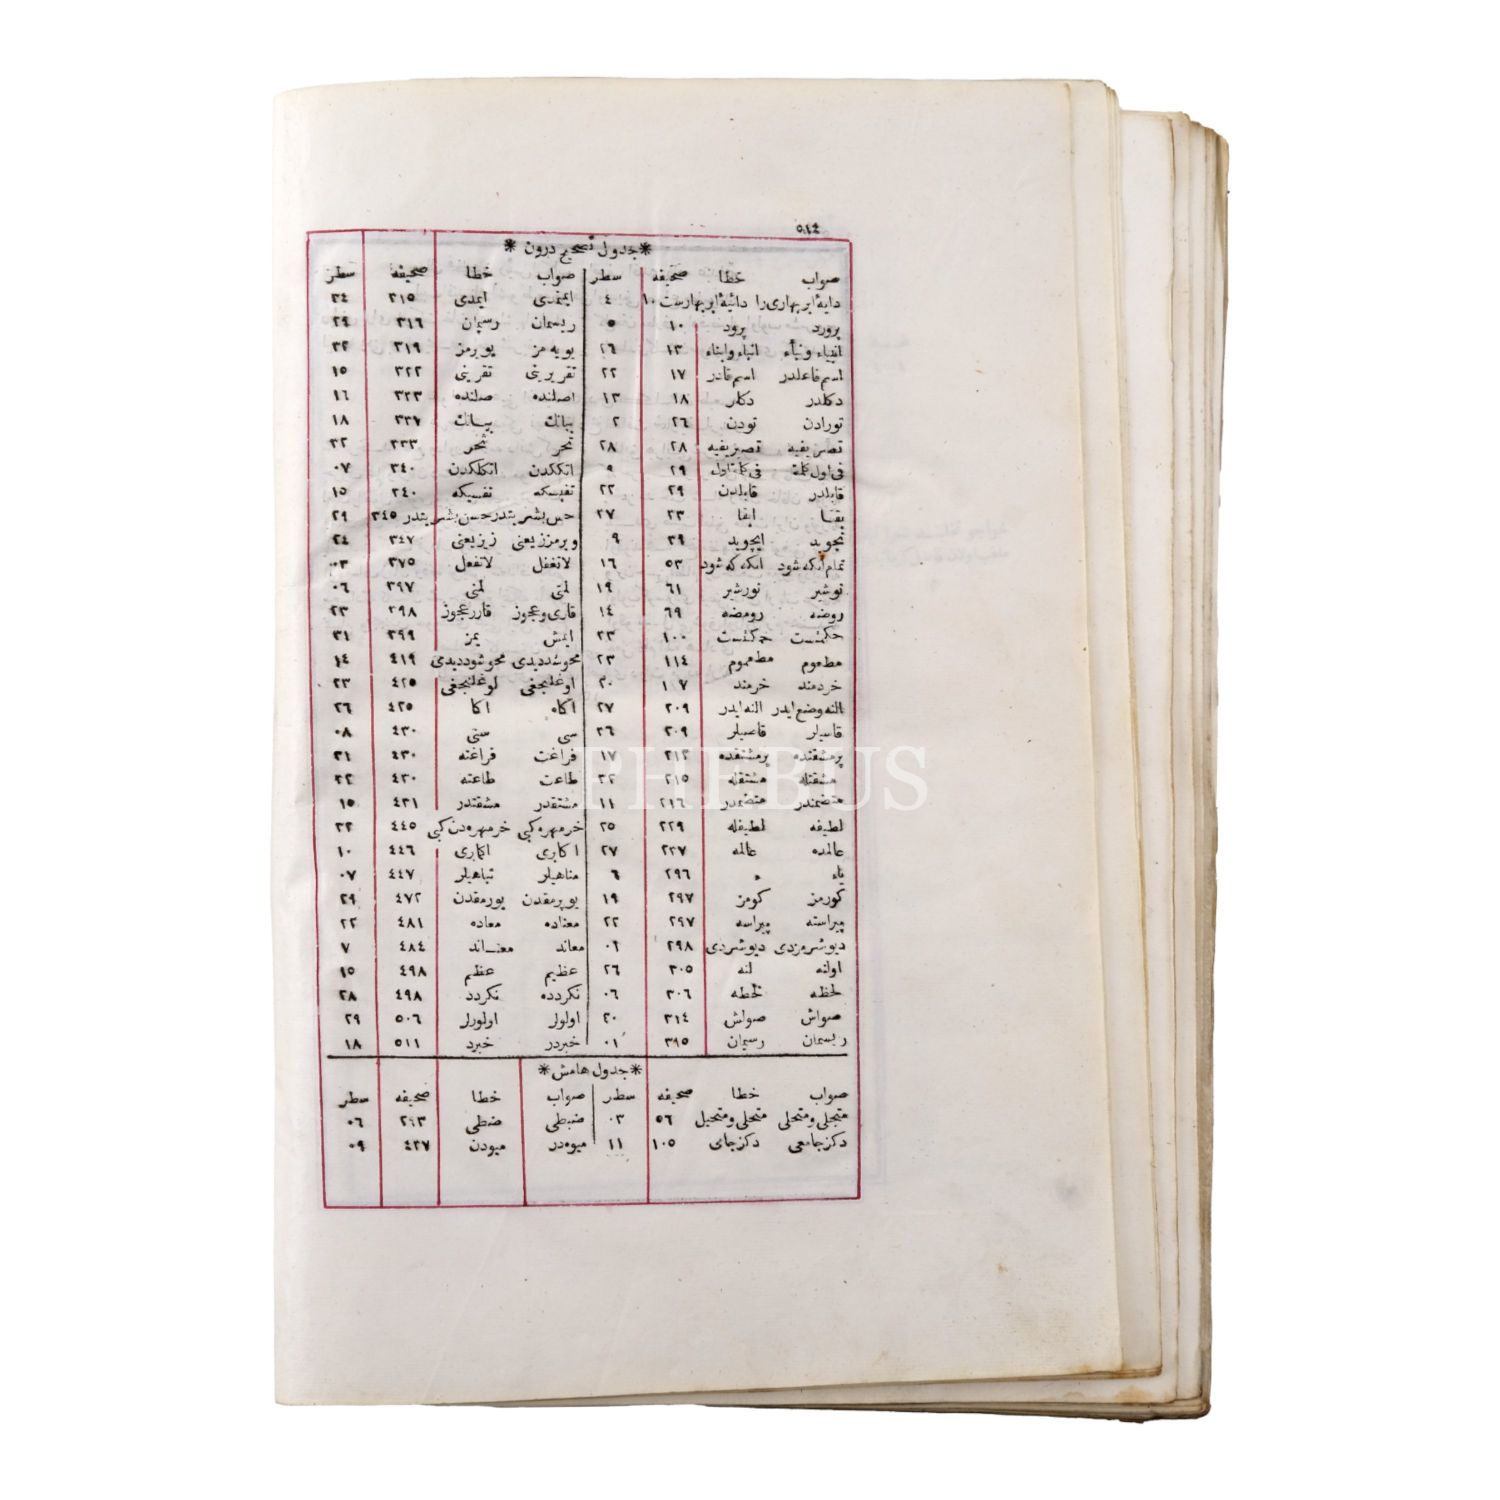 ٥١٤
* جدول تصحیح درون *
صواب خطا صحیفه سطر صواب خطا صحیفه سطر
دایۀ ابر بهاری را دائیۀ ابر بهارست ١٠ ٤ ایمدی ٣١٥ ٣٤
پرورد پرود ١٠ ٥ ریسمان رسیمان ٣١٦ ٢٩
انبیاء و نبأء انباء وابناء ١٣ ٢٦ یویه مز یویرمز ٣١٩ ٣٢
اسم فاعلدر اسم فاندر ١٧ ٢٢ تقریرینی تقرینی ٣٢٢ ١٥
دکلدر دکلر ١٨ ١٣ اصلنده صلنده ٣٢٣ ١٦
تورادن تودن ٢٦ ٢ بیانك بیسانك ٣٣٧ ١٨
تصریفیه تصبریفیه ٢٨ ٢٨ تحر ٣٣٣ ٣٢
فی اول کلمة فی کلمة اول ٢٩ ٩ انککدن انکلکدن ٣٤٠ ٠٧
قابلدر قابلدن ٢٩ ٢٢ تفیسکه تفسیکه ٣٤٠ ١٥
بقتا ابقا ٢٣ ٢٧ حس بشر یتدر حسن بشر یتدر ٣٤٥ ٢٩
نجوید ایجوید ٣٩ ٩ ویرمز زیعنی زیزیعنی ٣٤٧ ٢٤
تمام آنکه شود انکه که شود ٥٣ ١٦ لاتغفل لاتفعل ٣٧٥ ٠٣
نوشبر نورشبر ٦١ ١٩ لمتی لمنی ٣٩٧ ٠٦
روضه رومضه ٦٩ ١٤ قاری و عجوز قارر عجوز ٣٩٨ ٢٣
حکمتست حمکتست ١٠٠ ٢٣ ایمش یمز ٣٩٩ ٣١
مطعوم مطعموم ١١٤ ٢٣ محو شددیدی محو شوددیدی ٤١٩ ١٤
خردمند خرمند ١٠٧ ٢٠ اوغلنجغی لوغلنجغی ٤٢٥ ٢٣
النه وضع ایدر النه ایدر ٢٠٩ ٢٧ اکاه اکا ٤٢٥ ٢٦
قاسیلر قاصیلر ٢٠٩ ٢٦ سی سنی ٤٣٠ ٠٨
پرمشقتده پرمشتقده ٢١٢ ١٧ فراغت فراغته ٤٣٠ ٣١
مشقتله مشتقله ٢١٥ ٢٢ طاعت طاعته ٤٣٠ ٢٢
متضمندر متضمدر ٢١٦ ١١ مشتقدر مشقتدر ٤٣١ ١٥
لطیفه لطیفله ٢٢٩ ٢٥ خرمهره کبی خرمهره دن کبی ٤٤٥ ٢٢
عالمده عالمه ٢٣٧ ٢٧ اکابری اکاری ٤٤٦ ١٠
یاء ء ٢٩٦ ٦ مناهیلر تباهیلر ٤٤٧ ٠٧
کورمز کومز ٢٩٧ ١٩ یوبرمقدن یورمقدن ٤٧٢ ٢٩
پیراسته پیراسه ٢٩٧ ٢٢ معتاده معاده ٤٨١ ٢٢
دیوشرمزدی دیوشردی ٢٩٨ ٠٦ معاند معنـاند ٤٨٤ ٧
اولنه لنه ٣٠٥ ٢٦ عظیم عظم ٤٩٨ ١٥
لحظه لخطه ٣٠٦ ٠٦ نکردده نکردد ٤٩٨ ٢٨
صواش صنواش ٣١٤ ٢٠ اولولر اولورلر ٥٠٦ ٢٩
ریسمان رسیمان ٣٩٥ ٠١ خبردر خبرد ٥١١ ١٨
* جدول هامش *
صواب خطا صحیفه سطر صواب خطا صحیفه سطر
متجلی و متحلی متجلی و متحیل ٥٦ ٠٣ ضبطی ضنطی ٢٩٣ ٠٦
دکز جامعی دکز جای ١٠٥ ١١ میوه در میودن ٤٢٧ ٠٩
PHEBUS